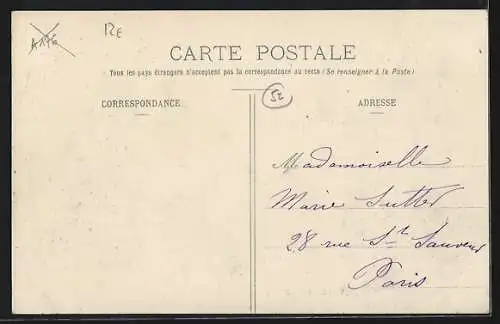 RE
CARTE POSTALE
Tous les pays étrangers n'acceptent pas la correspondance au recto (Se renseigner à la Poste)
CORRESPONDANCE
52
ADRESSE
Mademoiselle
Marie Sutter
28 rue St Sauveur
Paris